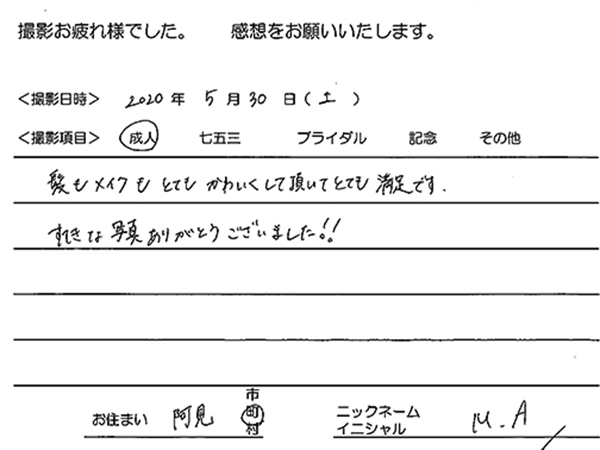 撮影お疲れ様でした。　感想をお願いいたします。
＜撮影日時＞ 2020 年 5 月 30 日 (土)
＜撮影項目＞ 成人 七五三 ブライダル 記念 その他
髪もメイクもとてもかわいくして頂いてとても満足です.
すてきな写真ありがとうございました!!
お住まい 阿見 市町村 ニックネーム イニシャル M.A